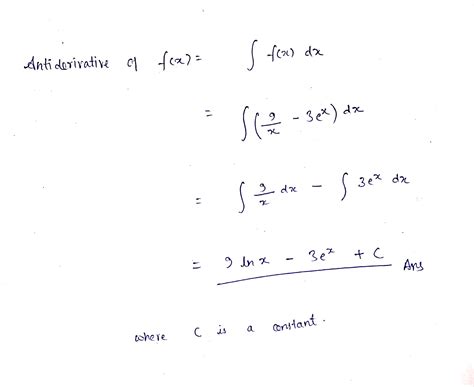 Antiderivative of f(x) = ∫ f(x) dx
= ∫ (9/x - 3eˣ) dx
= ∫ 9/x dx - ∫ 3eˣ dx
= 9 ln x - 3eˣ + C Ans
where C is a constant.